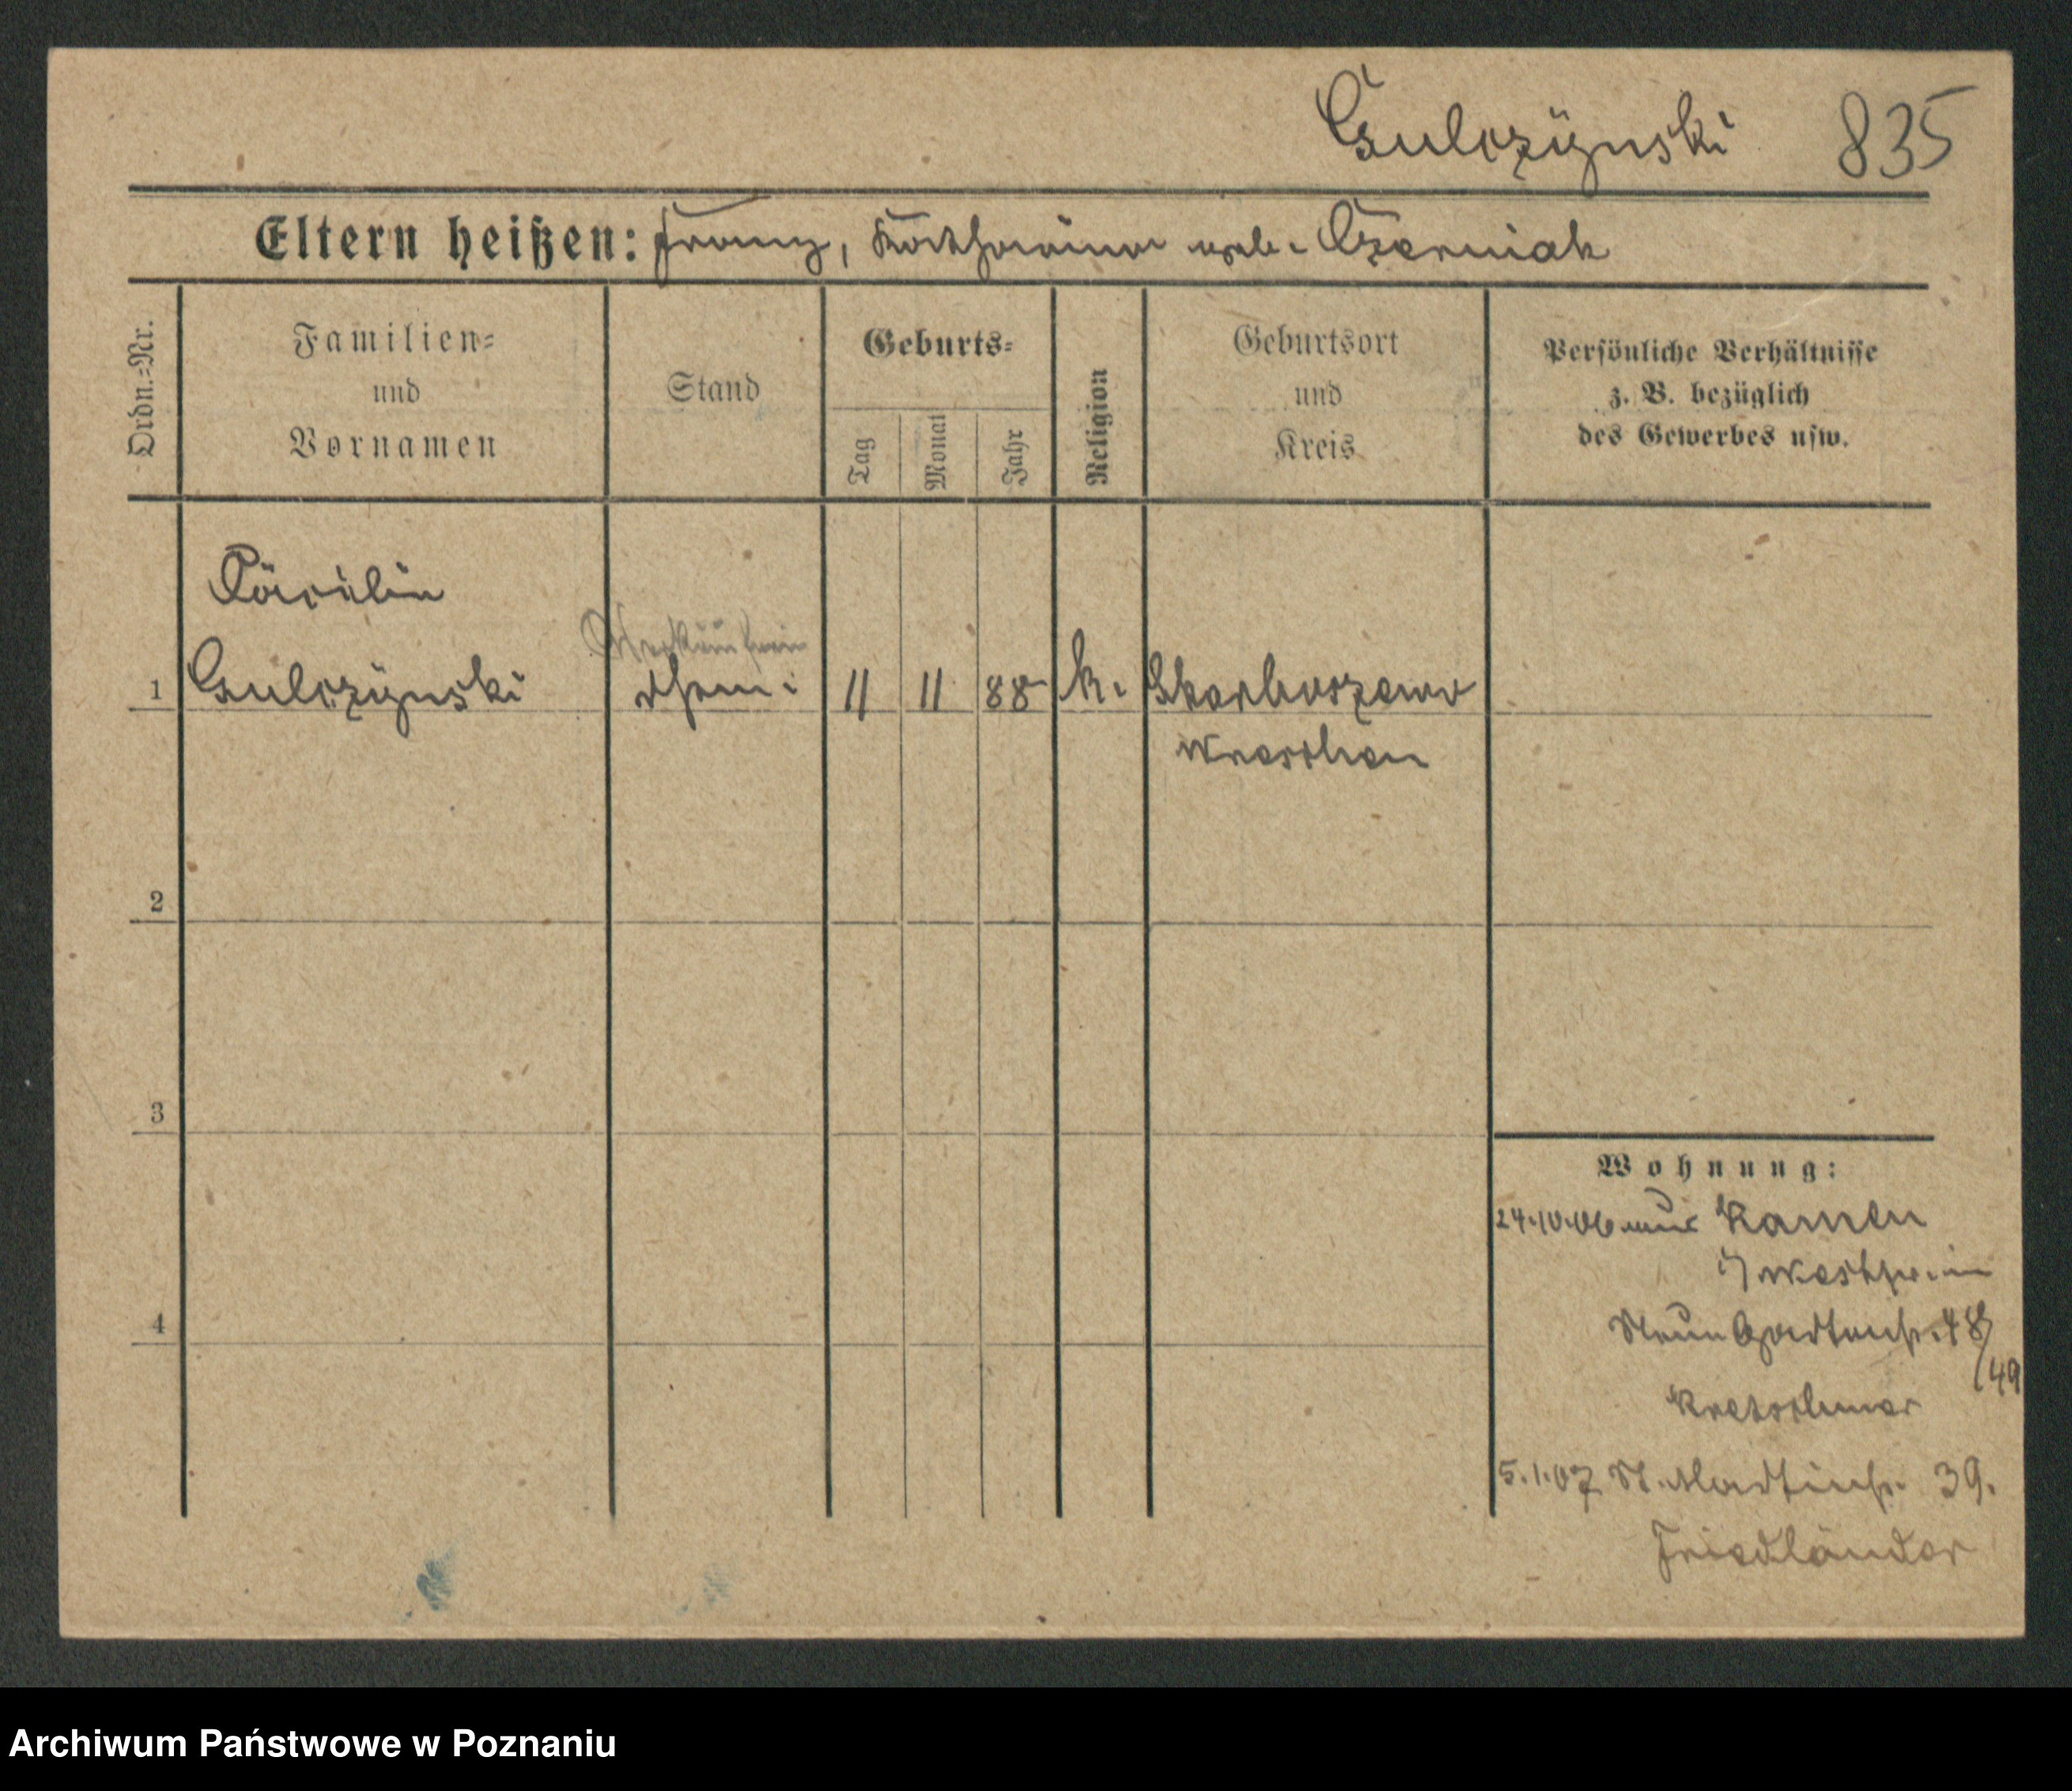 Gulczÿnski 835
Eltern heißen: Franz, Katharina geb. Czerniak
Ordn.=Nr.
Familien=
und
Vornamen
Stand
Geburts=
Tag
Monat
Jahr
Religion
Geburtsort
und
Kreis
Persönliche Verhältnisse
z. B. bezüglich
des Gewerbes usw.
Cäcilie
Verkäuferin
1 Gulczÿnski 11 11 88 k. Skarboszewo
Wreschen
2
3
4
Wohnung:
24.10.06 aus Kamen
i/ Westf.
Neue Gartenstr. 48/
/49
Kretschmer
5.1.07 St. Martinstr. 39.
Friedländer
Archiwum Państwowe w Poznaniu